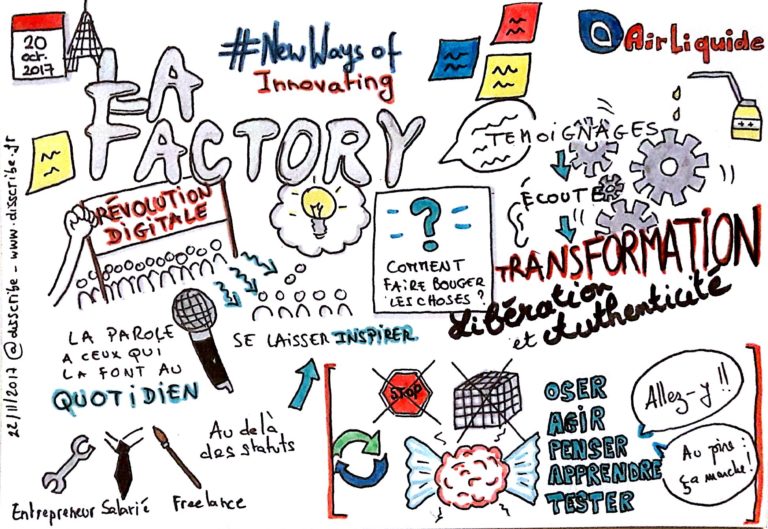 20
oct.
2017
LA
FACTORY
#NewWays of
Innovating
AirLiquide
TEMOIGNAGES
ÉCOUTE
TRANSFORMATION
Libération
et Authenticité
RÉVOLUTION
DIGITALE
?
COMMENT
FAIRE BOUGER
LES CHOSES ?
LA PAROLE
A CEUX QUI
LA FONT AU
QUOTIDIEN
SE LAISSER INSPIRER
Au delà
des statuts
Entrepreneur Salarié Freelance
STOP
OSER
AGIR
PENSER
APPRENDRE
TESTER
Allez-y !!
Au pire :
ça marche !
22/11/2017 @disscribe - www.disscribe.fr